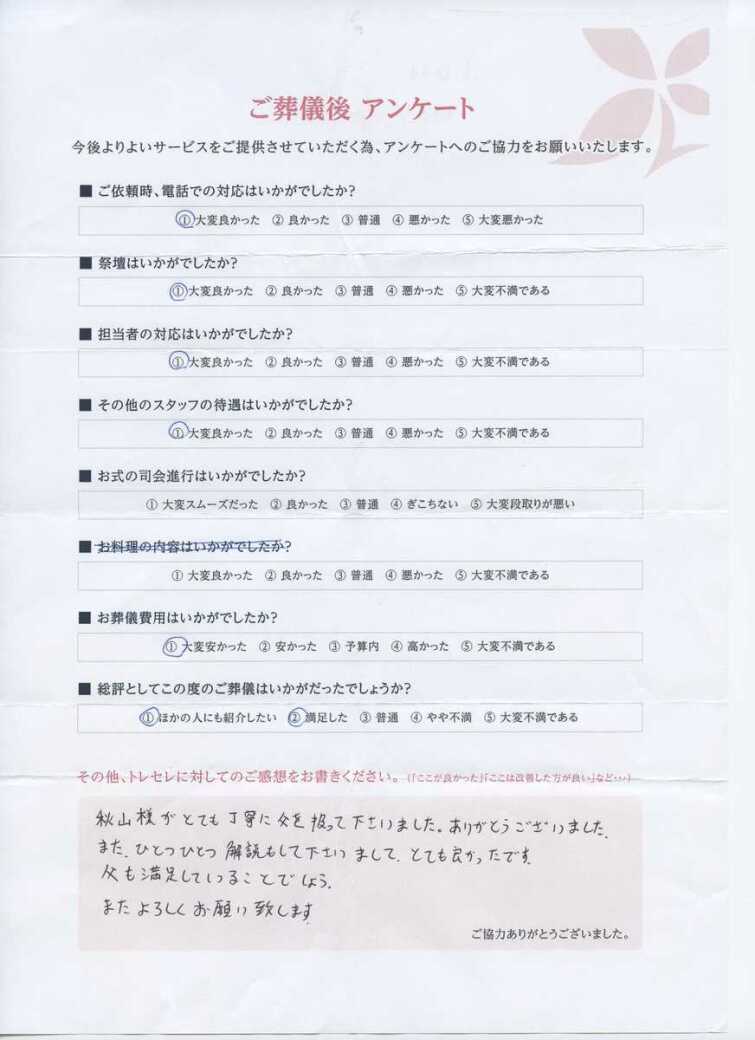 ご葬儀後 アンケート
今後よりよいサービスをご提供させていただく為、アンケートへのご協力をお願いいたします。
■ ご依頼時、電話での対応はいかがでしたか?
① 大変良かった ② 良かった ③ 普通 ④ 悪かった ⑤ 大変悪かった
■ 祭壇はいかがでしたか?
① 大変良かった ② 良かった ③ 普通 ④ 悪かった ⑤ 大変不満である
■ 担当者の対応はいかがでしたか?
① 大変良かった ② 良かった ③ 普通 ④ 悪かった ⑤ 大変不満である
■ その他のスタッフの待遇はいかがでしたか?
① 大変良かった ② 良かった ③ 普通 ④ 悪かった ⑤ 大変不満である
■ お式の司会進行はいかがでしたか?
① 大変スムーズだった ② 良かった ③ 普通 ④ ぎこちない ⑤ 大変段取りが悪い
■ お料理の内容はいかがでしたか?
① 大変良かった ② 良かった ③ 普通 ④ 悪かった ⑤ 大変不満である
■ お葬儀費用はいかがでしたか?
① 大変安かった ② 安かった ③ 予算内 ④ 高かった ⑤ 大変不満である
■ 総評としてこの度のご葬儀はいかがだったでしょうか?
① ほかの人にも紹介したい ② 満足した ③ 普通 ④ やや不満 ⑤ 大変不満である
その他、トレセレに対してのご感想をお書きください。(「ここが良かった」「ここは改善した方が良い」など・・・)
秋山様がとても丁寧に父を扱って下さいました。ありがとうございました。
また、ひとつひとつ解説もして下さいまして、とても良かったです。
父も満足していることでしょう。
またよろしくお願い致します
ご協力ありがとうございました。